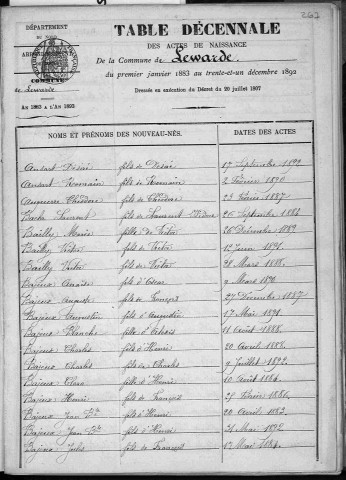 262
DÉPARTEMENT
TABLE DÉCENNALE
DES ACTES DE NAISSANCE
De la Commune de Lewarde.
du premier janvier 1883 au trente-et-un décembre 1892
Dressée en exécution du Décret du 20 juillet 1807
COMMUNE
de Lewarde
AN 1883 A L'AN 1892
NOMS ET PRÉNOMS DES NOUVEAU-NÉS.
DATES DES ACTES
Ansart Désiré fils de Désiré 17 Septembre 1892
Ansart Romain fils de Romain 2 Février 1890
fils de Théodore 23 Février 1887
Laurent fils de Laurent 26 Septembre 1884
Bailly Marie fille de Victor 26 Décembre 1889
Bailly Victor fils de Victor 12 Juin 1891
Bailly Victor fils de Victor 28 Mars 1888
Bajeux fille d'Oscar 9 Mars 1891
Bajeux Auguste fils de François 27 Décembre 1887
Bajeux Augustin fils d'Augustin 17 Mai 1891
Bajeux Blanche fille d' 11 Août 1888
Bajeux Charles fils d'Henri 20 Avril 1888
Bajeux Charles fils de Charles 9 Juillet 1892
Bajeux Clara fille d'Henri 10 Août 1884
Bajeux fils de François 21 Février 1886
Bajeux Jean Bte fils d'Henri 20 Avril 1883
Bajeux Jean Bte fils d'Henri 21 Mai 1892
Bajeux Jules fils de François 17 Mai 1884